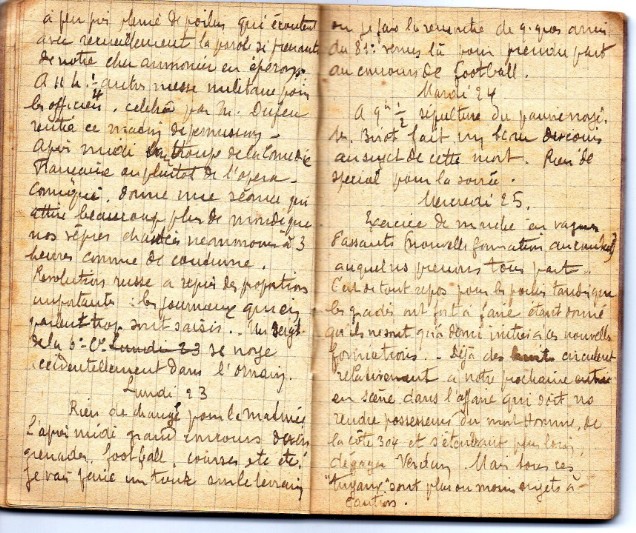 à peu près plein de poilus qui écoutent
avec recueillement la parole si prenante
de notre cher aumônier en
A 11 h. 1/4 autre messe militaire pour
les officiers, célébrée par M.
rentré ce matin de permission -
Après midi troupe de la Comédie
Française ou plutôt de l'opéra-
Comique. donne une séance qui
attire beaucoup plus de monde que
nos vêpres chantées néanmoins à 3
heures comme de coutume.
Révolution russe a repris des proportions
importantes : les journaux qui en
parlent trop sont saisis. Un sergt
de la Cie Lundi 23 se noye
accidentellement dans l'Ornain.
Lundi 23
Rien de changé pour la matinée
L'après midi grand concours de
grenades, football, courses etc etc.
Je vais faire un tour sur le terrain
ou je fais la rencontre de q. ques amis
du 81e venus là pour prendre part
au concours de football.
Mardi 24
A 9h 1/2 sépulture du pauvre noyé.
M. fait un beau discours
au sujet de cette mort. Rien de
spécial pour la soirée.
Mercredi 25.
Exercice de marche en vagues
(nouvelle formation au combat)
auquel ns prenons tous part -
C'est de tout repos pour les poilus tandis que
les gradés ont fort à faire étant donné
qu'ils ne sont qu'à demi initiés à ces nouvelles
formations. - Déjà des bruits circulent
relativement à notre prochaine entrée
en scène dans l'affaire qui doit ns
rendre possesseurs du mort Homme, de
la côte 304 et s'étendant plus loin,
dégager Verdun. Mais tous ces
"tuyaux" sont plus ou moins sujets à
caution.